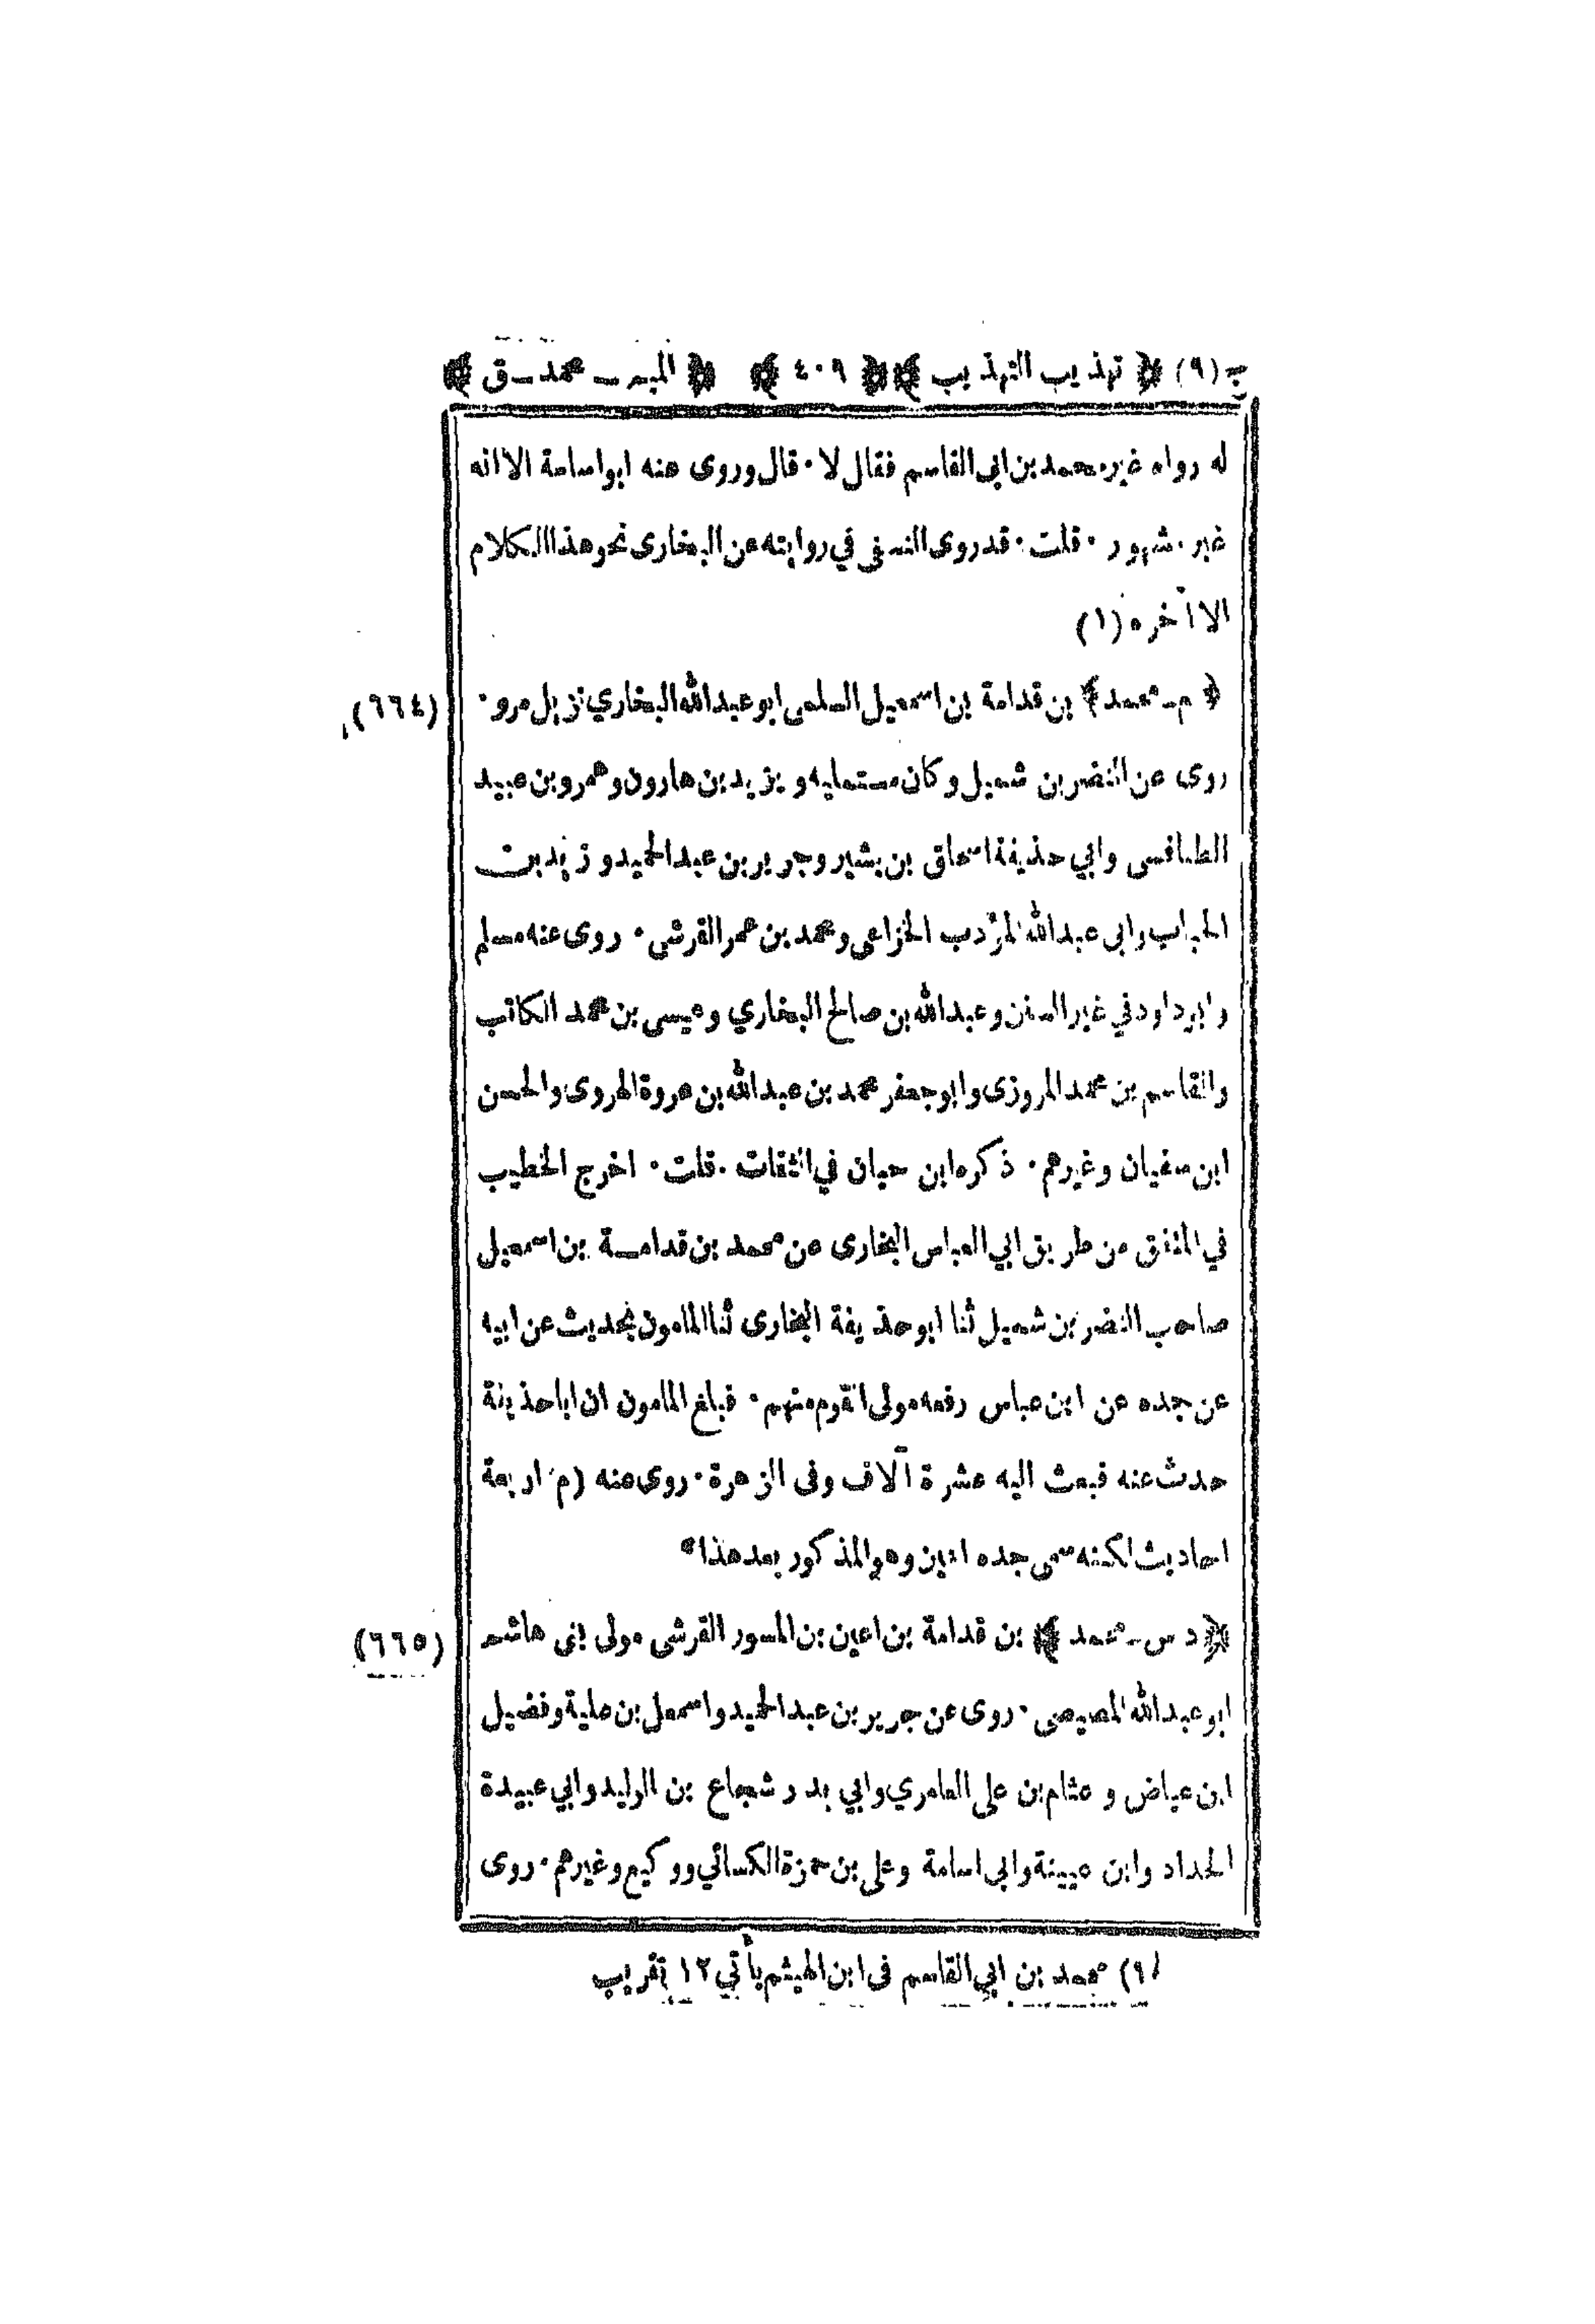 ج (٩) ﴿ تهذيب التهذيب ﴾ ﴿ ٤٠٩ ﴾ ﴿ الميم ــ محمد ــ ق ﴾
له رواه غير محمد بن ابي القاسم فقال لا٠ قال وروى عنه ابواسامة الا انه
غير مشهور ٠ قلت ٠ قد روى النسفي في روايته عن البخارى نحو هذا الكلام
الا آخره (١)
(٦٦٤) ﴿ م ــ محمد ﴾ بن قدامة بن اسمعيل السلمى ابو عبدالله البخاري نزيل مرو ٠
روى عن النضر بن شميل وكان مستمليه و يزيد بن هارون وعمرو بن عبيد
الطنافسى وابي حذيفة اسحاق بن بشير وجرير بن عبد الحميد و زيد بن
الحباب وابى عبدالله المؤدب الخزاعى ومحمد بن عمر القرشى ٠ روى عنه مسلم
وابوداود في غير السنن وعبدالله بن صالح البخاري وعيسى بن محمد الكاتب
والقاسم بن محمد المروزى وابو جعفر محمد بن عبدالله بن عروة الهروى والحسن
ابن سفيان وغيرهم ٠ ذكره ابن حبان في الثقات ٠ قلت ٠ اخرج الخطيب
في المتفق من طريق ابي العباس البخارى عن محمد بن قدامــة بن اسمعيل
صاحب النضر بن شميل ثنا ابو حذيفة البخارى ثنا المامون بحديث عن ابيه
عن جده عن ابن عباس رفعه مولى القوم منهم ٠ فبلغ المامون ان اباحذيفة
حدث عنه فبعث اليه عشرة آلاف وفى الزهرة ٠ روى عنه (م) اربعة
احاديث لكنه سمى جده اعين وهو المذكور بعد هذا ٠
(٦٦٥) ﴿ د س ــ محمد ﴾ بن قدامة بن اعين بن المسور القرشى مولى بنى هاشم
ابو عبدالله المصيصى ٠ روى عن جرير بن عبد الحميد واسمعيل بن علية وفضيل
ابن عياض و عثام بن على العامري وابي بدر شجاع بن الوليد وابي عبيدة
الحداد وابن عيينة وابى اسامة وعلى بن حمزة الكسائي ووكيع وغيرهم ٠ روى
(١) محمد بن ابي القاسم فى ابن الهيثم يأتي ١٢ تقريب